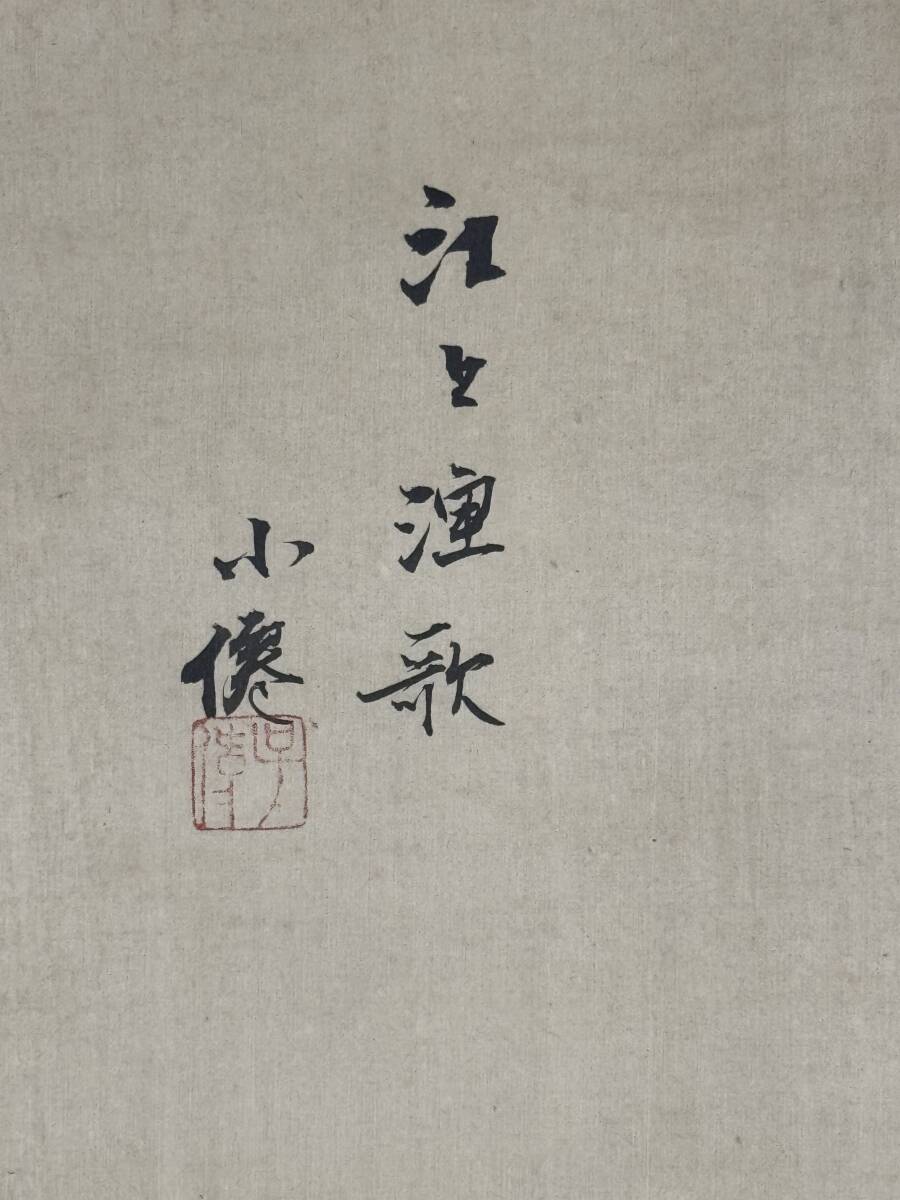 江上漁歌
小僊